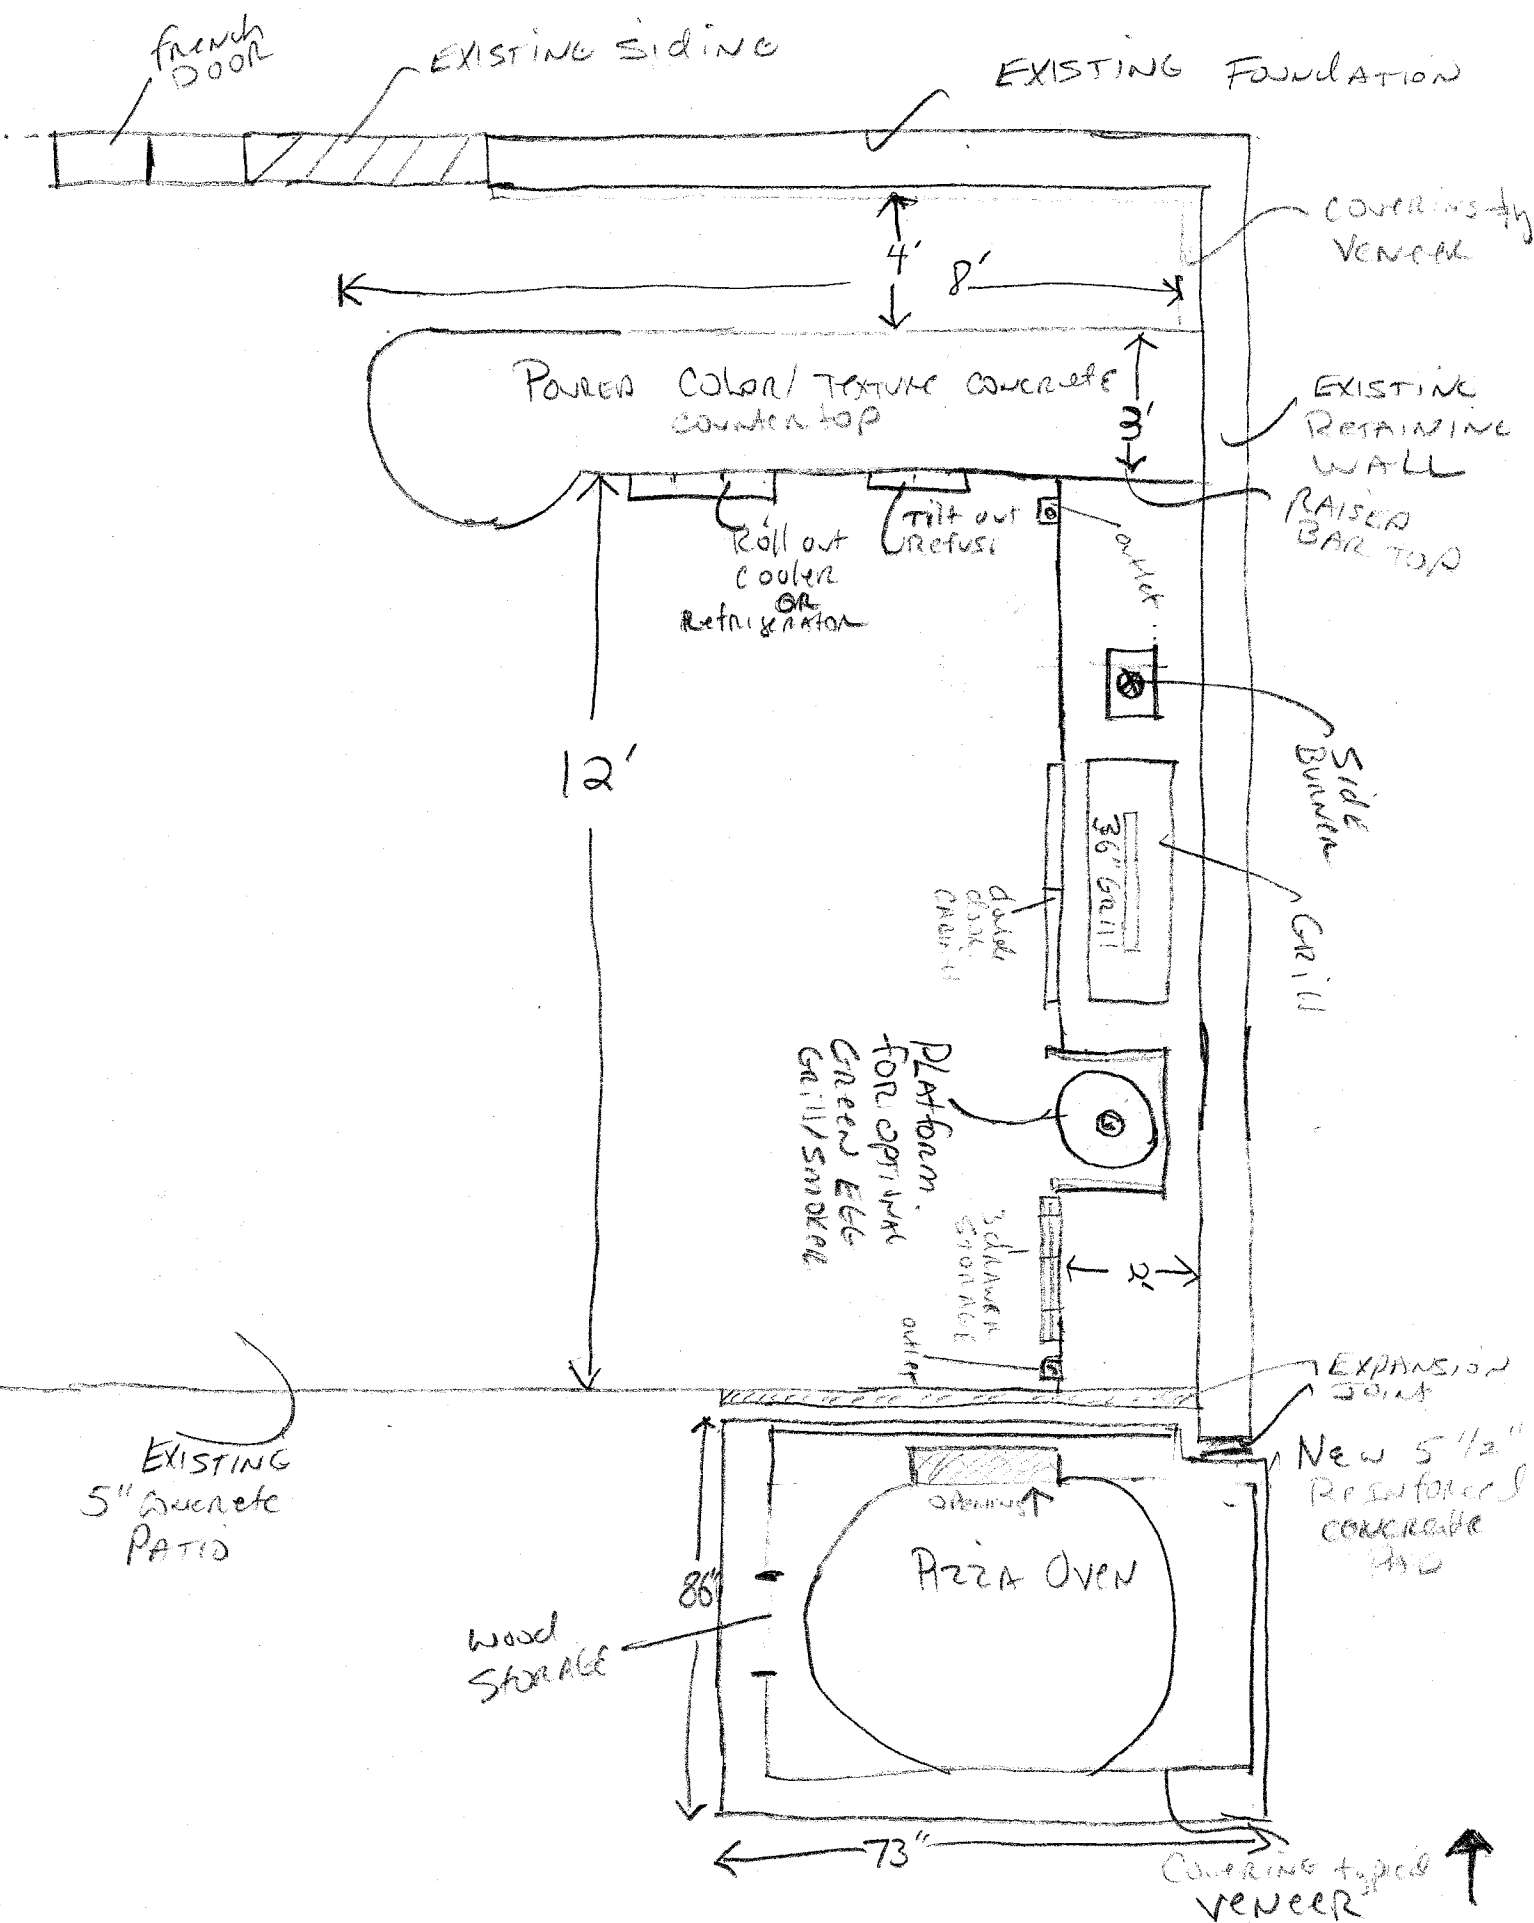 FRENCH
DOOR
EXISTING SIDING
EXISTING FOUNDATION
4'
8'
VENEER
POURED COLOR/TEXTURE CONCRETE
COUNTERTOP
3'
EXISTING
RETAINING
WALL
RAISED
BAR TOP
Roll out
COOLER
OR
Refrigerator
Tilt out
outlet
12'
SIDE
BURNER
36" Grill
GRILL
double
door
PLATFORM
FOR OPTIONAL
GREEN EGG
GRILL/SMOKER
G
3 DRAWER
STORAGE
2'
outlet
EXPANSION
JOINT
EXISTING
5" Concrete
PATIO
NEW 5 1/2"
Reinforced
CONCRETE
PAD
OPENING
PIZZA OVEN
86"
WOOD
STORAGE
73"
COVERING typical
VENEER